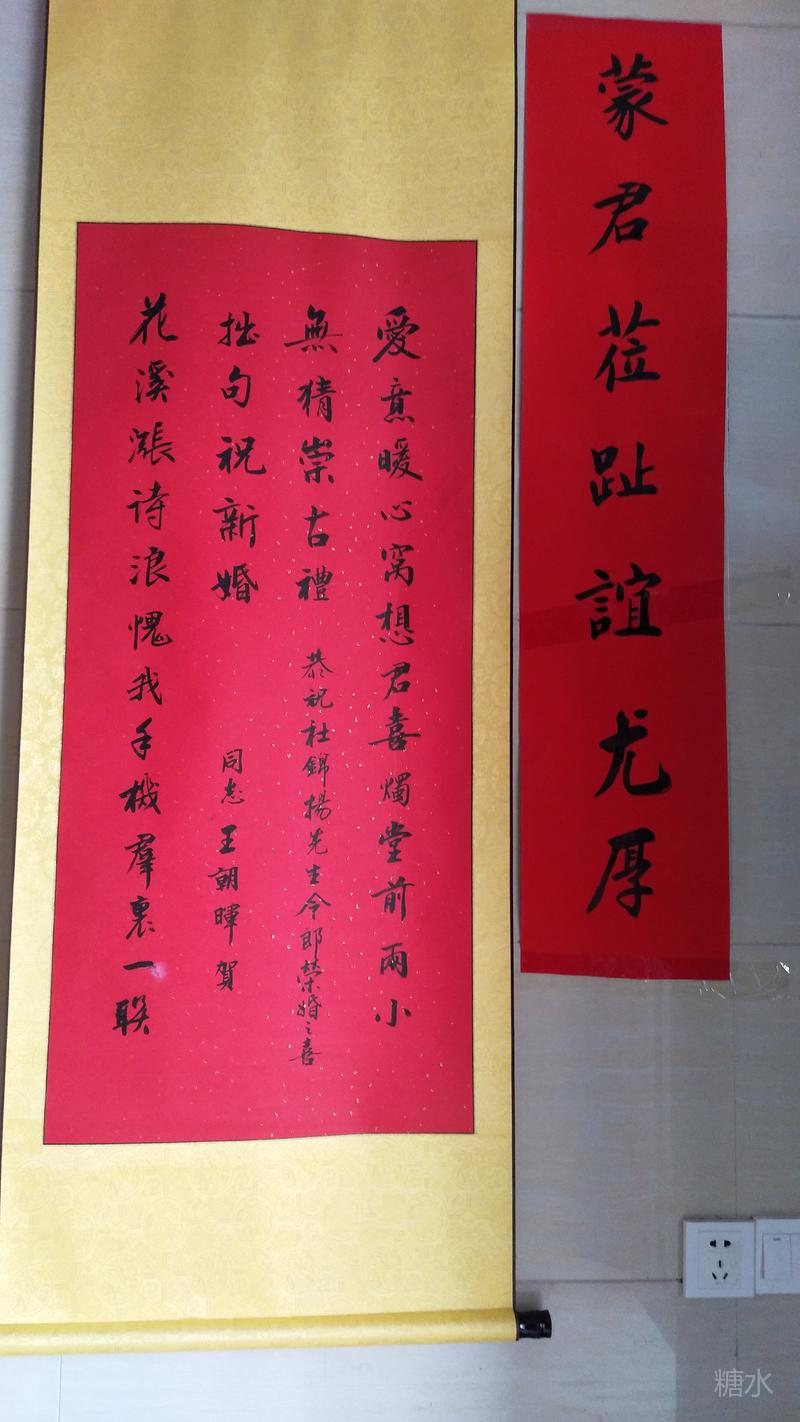 蒙君莅趾誼尤厚
愛意暖心窩想君喜燭堂前兩小
無猜崇古禮
恭祝杜錦揚先生令郎榮婚之喜
拙句祝新婚
同志王朝暉賀
花溪漲诗浪愧我手機羣裏一联
糖水